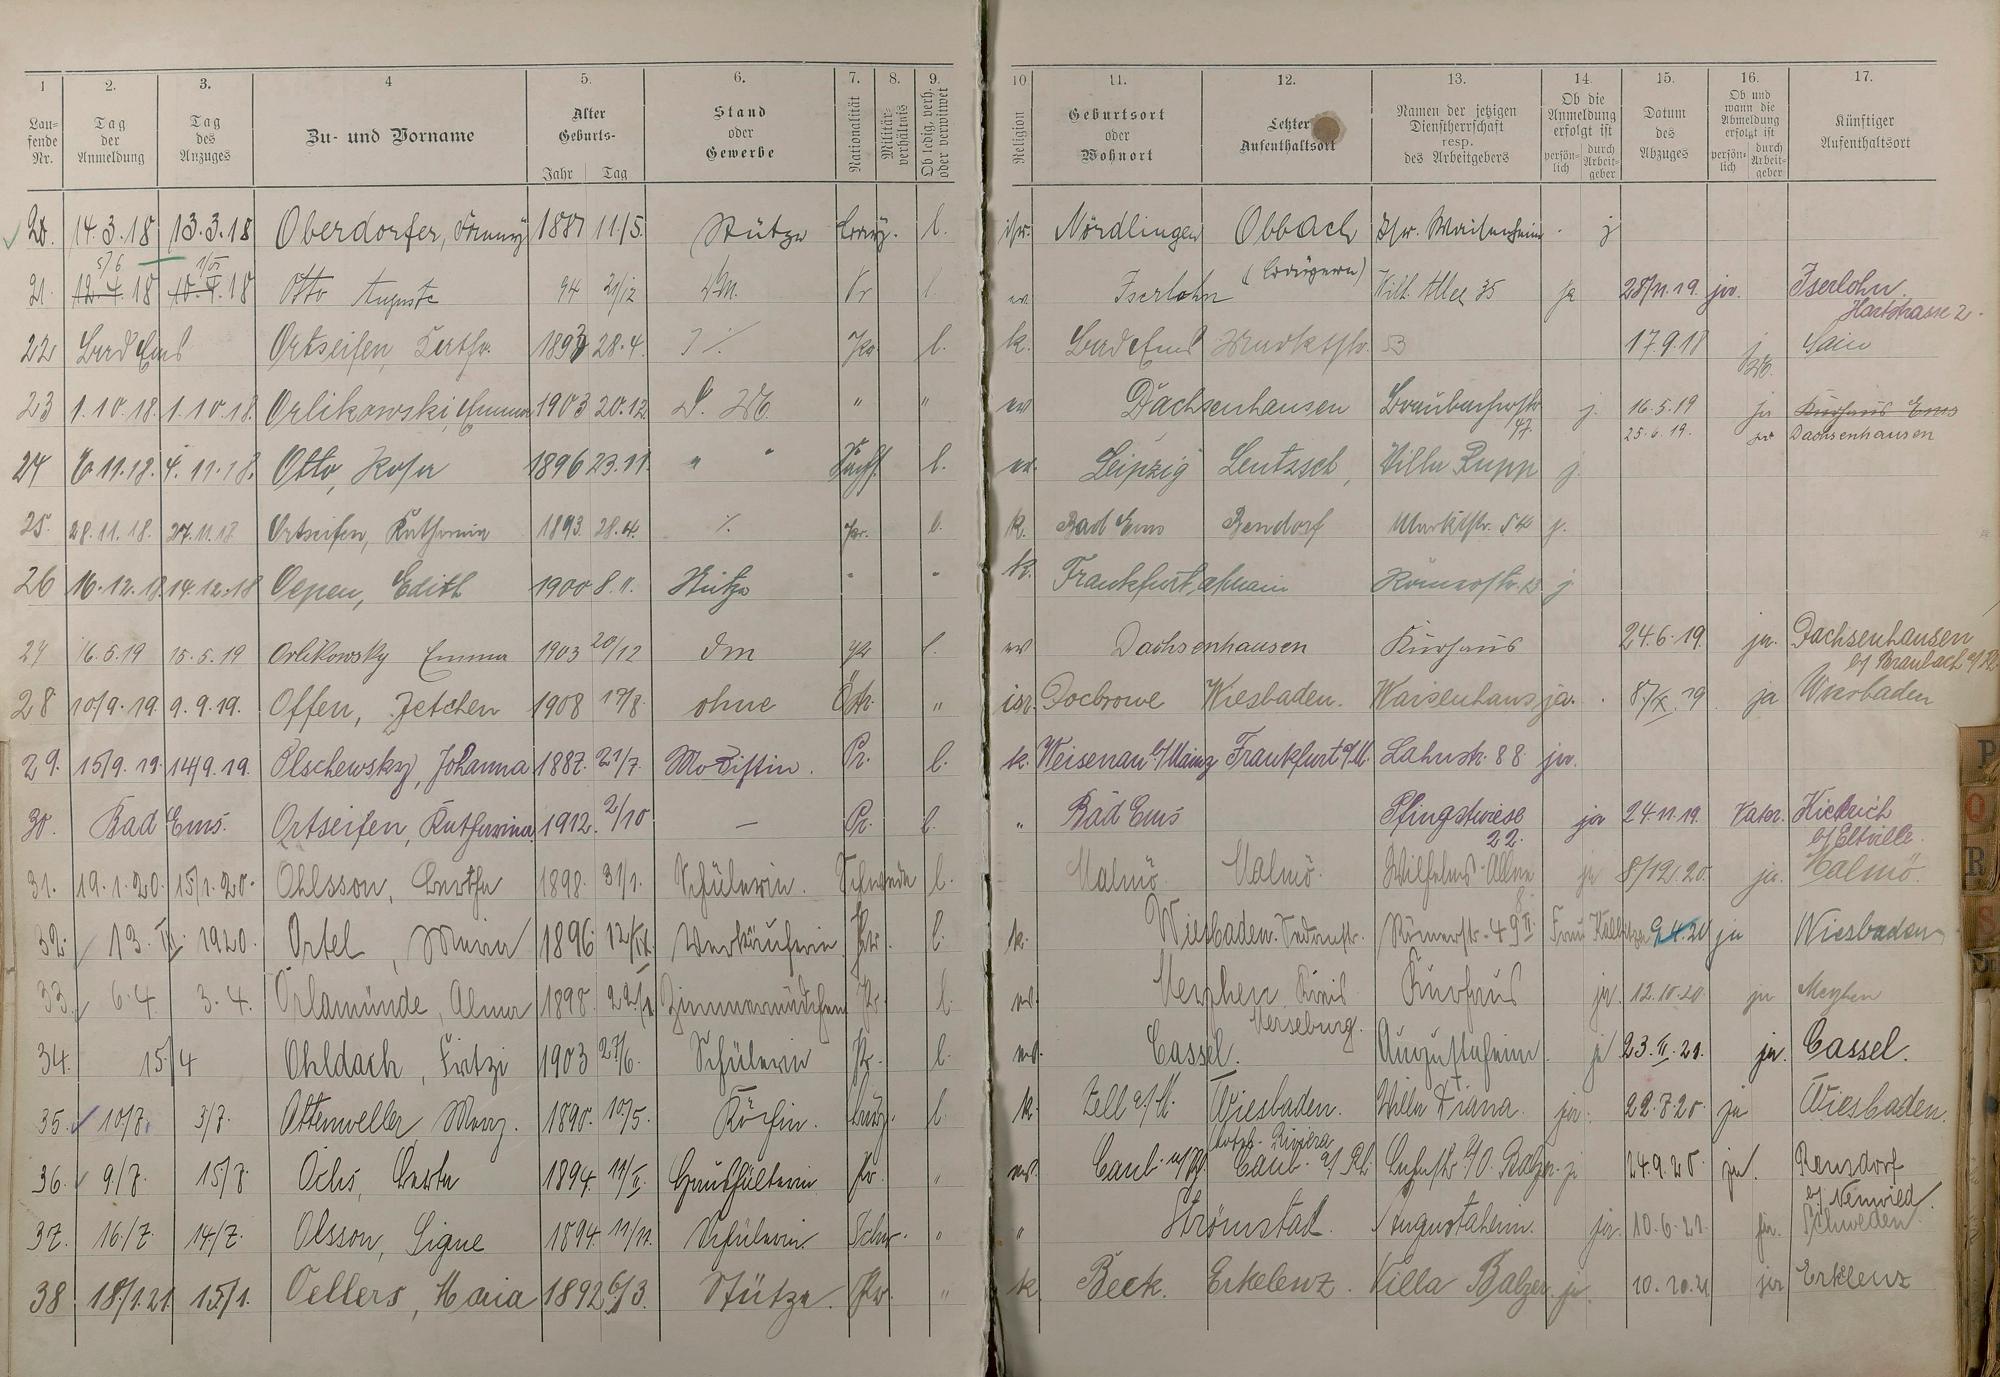 1 2. 3. 4 5. 6. 7. 8. 9. 10 11. 12. 13. 14. 15. 16. 17.
Laufende Nr. Tag der Anmeldung Tag des Anzuges Zu- und Vorname Alter Geburts- Jahr Tag Stand oder Gewerbe Nationalität Militärverhältnis Ob ledig, verh. oder verwitwet Religion Geburtsort oder Wohnort Letzter Aufenthaltsort Namen der jetzigen Dienstherrschaft resp. des Arbeitgebers Ob die Anmeldung erfolgt ist persönlich durch Arbeitgeber Datum des Abzuges Ob und wann die Abmeldung erfolgt ist persönlich durch Arbeitgeber Künftiger Aufenthaltsort
20. 14.3.18 13.3.18 Oberdorfer, Fanny 1887 11/5. Stütze Bay. l. isr. Nördlingen Obbach Isr. Waisenheim j
5/6 1/5 (Bayern)
21. 12.4.18 18 Otto Auguste 94 21/12 DM. Pr l ev Iserlohn Wilh. Allee 35 ja 28/11.19. ja. Iserlohn
Hartstrasse 2.
22 Bad Ems Ortseifen, Kathr. 1893 28.4. Pr. l. k. Bad Ems Marktstr. 53 17.9.18 Sain
23 1.10.18. 1.10.18. Orlikowski, Emma 1903 20.12. D. M. " " ev Dachsenhausen Braubacherstr j. 16.5.19 ja Kurhaus Ems
47. 25.6.19. Dachsenhausen
24 6.11.18. 4.11.18. Otto, Rosa 1896 23.11. " " Sächs. l. ev. Leipzig Leutzsch, Villa Rupp j.
25. 28.11.18. 27.11.18 Ortseifen, Katharina 1893. 28.4. ./. Pr. l. k. Bad Ems Bendorf Marktstr. 54 j.
26 16.12.18 14.12.18 Oepen, Edith 1900 8.11. Stütze " " k. Frankfurt a/Main Römerstr. j
27 16.5.19 15.5.19 Orlikowsky Emma 1903 20/12 Dm pr l. ev Dachsenhausen Kurhaus 24.6.19. ja. Dachsenhausen
b/ Braubach a/Rh
28 10/9.19. 9.9.19. Offen, Jetchen 1908 17/8. ohne Östr. " isr. Docbrowe Wiesbaden. Waisenhaus ja. 8/X.19 ja Wiesbaden
29. 15/9.19. 14/9.19. Olschewsky, Johanna 1887. 21/7. Modistin. Pr. l. k. Weisenau b/Mainz Frankfurt a/M. Lahnstr. 88 ja.
30. Bad Ems. Ortseifen, Katharina 1912. 2/10 — Pr. l. " Bad Ems Pfingstwiese ja 24.11.19. Vater. Kiedrich
22. b/Eltville.
31. 19.1.20. 15/1.20. Ohlsson, Bertha 1898. 31/1. Schülerin. Schwede l. Malmö. Malmö. Wilhelms-Allee ja 8/12.20. ja. Malmö.
8.
32. 13. 1920. Ortel, Maria 1896. Verkäuferin Pr. l. k. Wiesbaden. Sedanstr. Römerstr. 49 II. Frau 9.4.20 ja Wiesbaden
33. 6.4. 3.4. Orlamünde, Alma 1898. Zimmermädchen Pr l. ev. Meyhen Kreis Kurhaus ja. 12.10.20. ja Meyhen
Merseburg.
34. 15/4 Ohldach, Fritzi 1903 27/6. Schülerin Pr. l. ev. Cassel. Augustaheim. ja 23.II.21. ja. Cassel.
35. 10/7. 3/7. Ottenweller, Marg. 1890. 10/5. Köchin. Bay. l k. Zell a/M. Wiesbaden. Villa Diana. ja. 22.7.20. ja Wiesbaden.
Hotel- Riviera
36. 9/7. 15/7. Ochs, Berta 1894. 11/II. Haushälterin Pr. " ev. Caub. a/Rh. Caub. a/Rh. Balzer. ja 24.9.20 ja. Rensdorf
b/ Neuwied.
37. 16/7. 14/7. Olsson, Signe 1894. 11/11. Schülerin. Schw. " " Strömstad. Augustaheim. ja. 10.6.21. ja. Schweden.
38 18/1.21. 15/1. Oellers, Maria 1892 6/3. Stütze. Pr. " k Beek. Erkelenz. Villa Balzer. ja. 10.10.21 ja Erklenz
P
Q
R
S